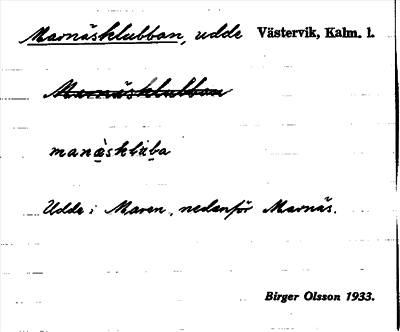 Marnäsklubban, udde Västervik, Kalm. l.
Marnäsklubban
Udde i Maren, nedanför Marnäs.
Birger Olsson 1933.